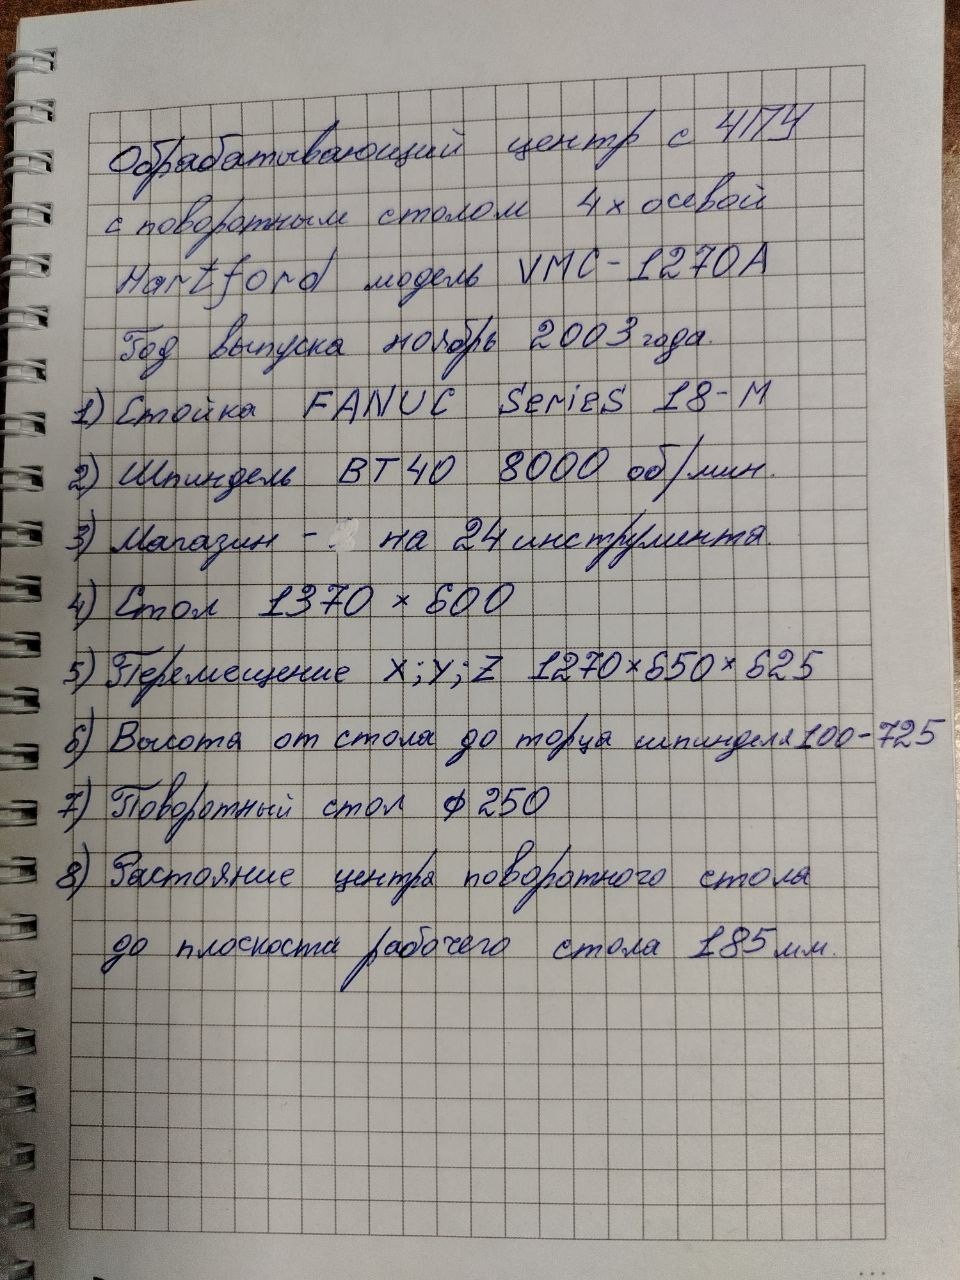 Обрабатывающий центр с ЧПУ
с поворотным столом 4х осевой
Hartford модель VMC-1270A
Год выпуска ноябрь 2003 года.
1) Стойка FANUC Series 18-M
2) Шпиндель BT40 8000 об/мин.
3) Магазин - на 24 инструмента.
4) Стол 1370 × 600
5) Перемещение X; Y; Z 1270×650×625
6) Высота от стола до торца шпинделя 100-725
7) Поворотный стол ф 250
8) Растояние центра поворотного стола
до плоскоста рабочего стола 185 мм.